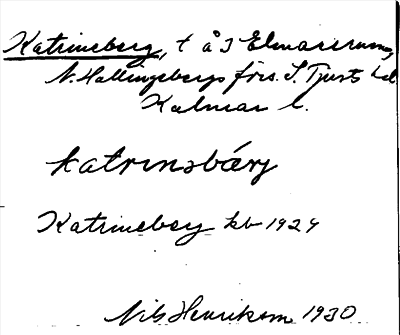 Katrineberg, t å 3 Elmarerum,
N. Hallingebergs förs. S. Tjusts hd
Kalmar l.
katrinsbärj
Katrineberg kb 1929
Nils Henrikson 1930